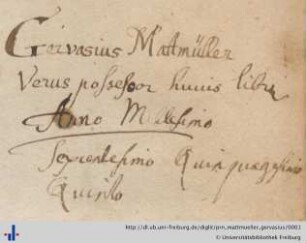 Gervasius Mattmüller
Verus possessor huius libri
Anno Millesimo
Sexcentesimo Quinquagesimo
Quinto
http://dl.ub.uni-freiburg.de/diglit/prn_mattmueller_gervasius/0001
© Universitätsbibliothek Freiburg